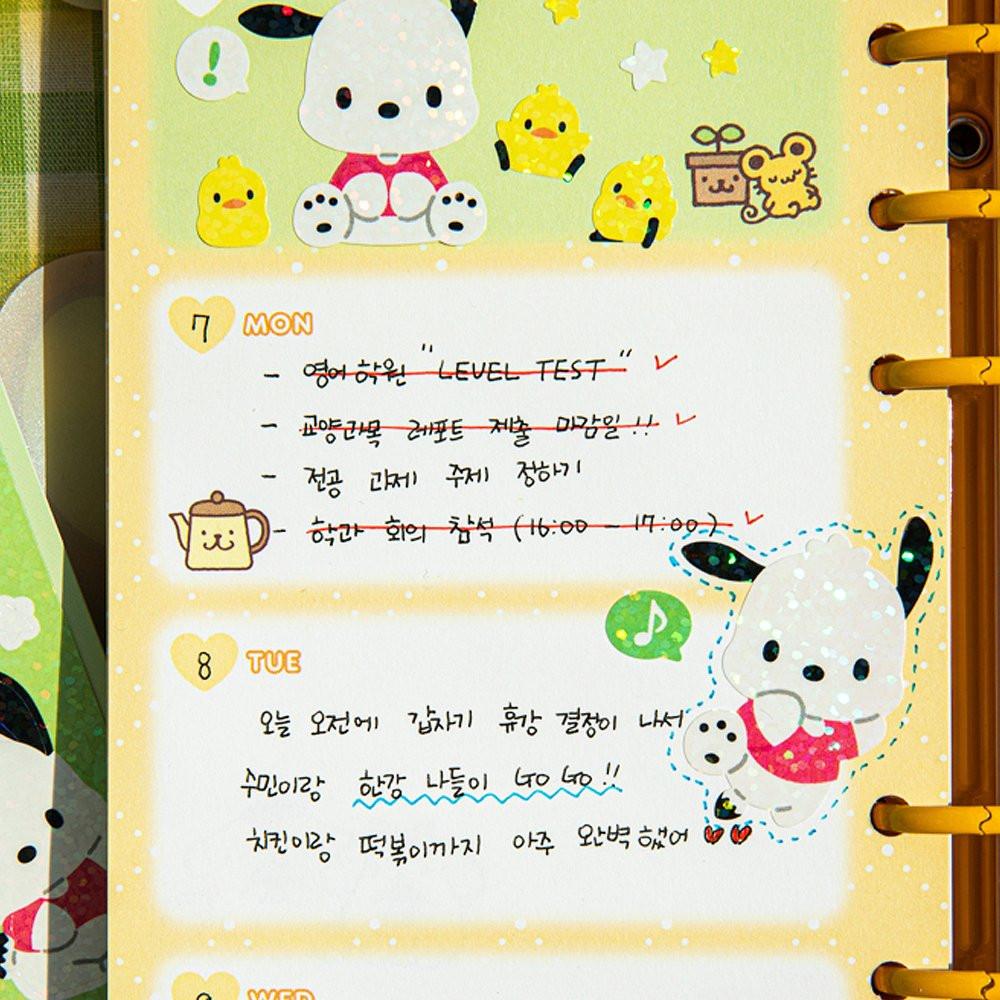 !
7 MON
- 영어학원 "LEVEL TEST" ✓
- 교양과목 레포트 제출 마감일!! ✓
- 전공 과제 주제 정하기
- 학과 회의 참석 (16:00 - 17:00) ✓
8 TUE
오늘 오전에 갑자기 휴강 결정이 나서
수민이랑 한강 나들이 GO GO!!
치킨이랑 떡볶이까지 아주 완벽했어 ♥♥
WED